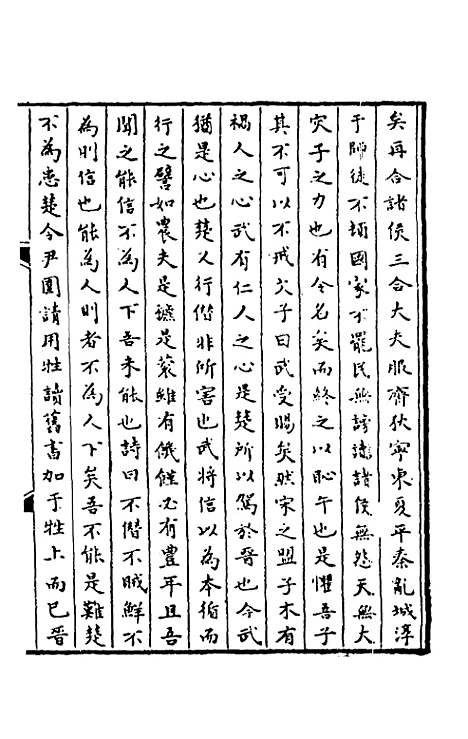 矣再合諸侯三合大夫服齊狄寧東夏平秦亂城淳
于師徒不頓國家不罷民無謗讟諸侯無怨天無大
灾子之力也有令名矣而終之以恥午也是懼吾子
其不可以不戒文子曰武受賜矣然宋之盟子木有
禍人之心武有仁人之心是楚所以駕於晉也今武
猶是心也楚又行僭非所害也武將信以為本循而
行之譬如農夫是穮是蓘雖有饑饉必有豊年且吾
聞之能信不為人下吾未能也詩曰不僭不賊鮮不
為則信也能為人則者不為人下矣吾不能是難楚
不為患楚令尹圍請用牲讀舊書加于牲上而已晉